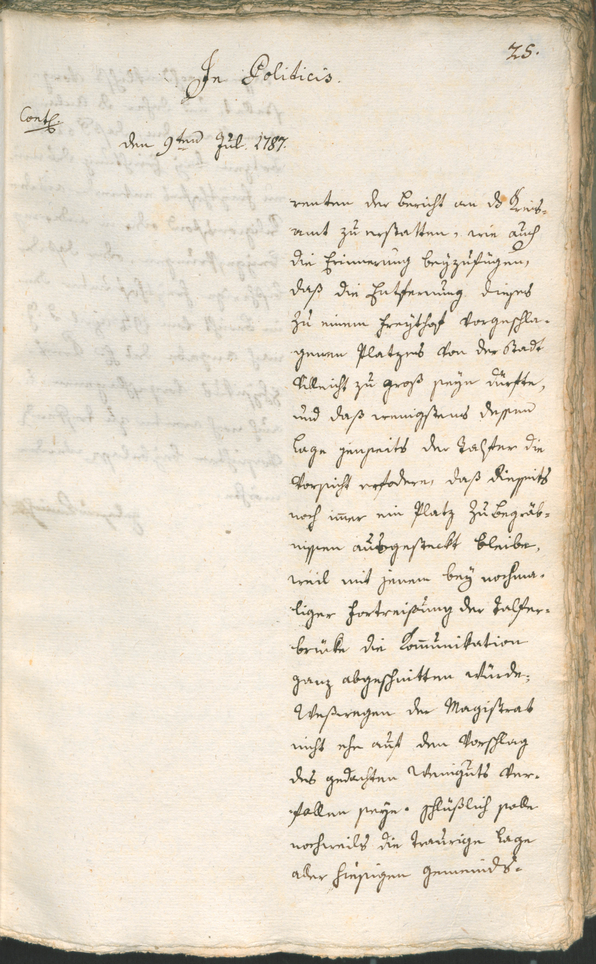 25.
In Politicis.
Cont.
den 9ten Jul. 1787.
renten der Bericht an ds Kreis-
amt zu erstatten, wie auch
die Erinnerung beyzufügen,
daß die Entfernung dieses
zu einem Freythof vorgeschla-
genen Platzes von der Stadt
villeicht zu groß seyn dürfte,
und daß wenigstens dessen
Lage jenseits der Talfer die
Vorsicht erfodere, daß diesseits
noch immer ein Platz zu Begräb-
nissen ausgesteckt bleibe,
weil mit jenem bey nochma-
liger Fortreißung der Talfer-
brücke die Kommunikation
ganz abgeschnitten würde;
Weßwegen der Magistrat
nicht ehe auf den Vorschlag
des gedachten Weinguts ver-
fallen seye. Schlüßlich solle
nochmals die traurige Lage
aller hiesigen Gemeinds-